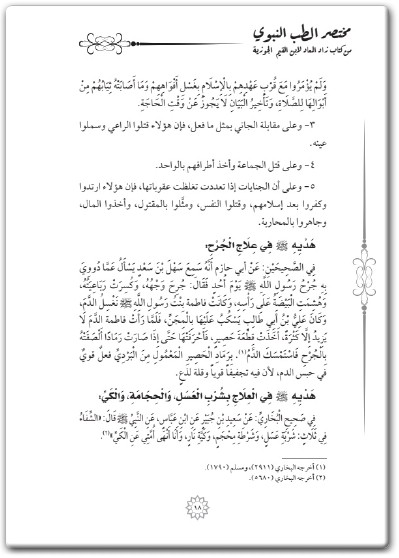 مختصر الطب النبوي
من كتاب زاد المعاد لابن القيم الجوزية
وَلَمْ يُؤْمَرُوا مَعَ قُرْبِ عَهْدِهِمْ بِالْإِسْلَامِ بِغَسْلِ أَفْوَاهِهِمْ وَمَا أَصَابَتْهُ ثِيَابُهُمْ مِنْ
أَبْوَالِهَا لِلصَّلَاةِ، وَتَأْخِيرُ الْبَيَانِ لَا يَجُوزُ عَنْ وَقْتِ الْحَاجَةِ.
٣- وعلى مقابلة الجاني بمثل ما فعل، فإن هؤلاء قتلوا الراعي وسملوا
عينه.
٤- وعلى قتل الجماعة وأخذ أطرافهم بالواحد.
٥- وعلى أن الجنايات إذا تعددت تغلظت عقوباتها، فإن هؤلاء ارتدوا
وكفروا بعد إسلامهم، وقتلوا النفس، ومثَّلوا بالمقتول، وأخذوا المال،
وجاهروا بالمحاربة.
هَدْيِهِ ﷺ فِي عِلَاجِ الْجُرْحِ:
فِي الصَّحِيحَيْنِ: عَنْ أبي حازم أَنَّهُ سَمِعَ سَهْلَ بْنَ سَعْدٍ يَسْأَلُ عَمَّا دُووِيَ
بِهِ جُرْحُ رَسُولِ اللَّهِ ﷺ يَوْمَ أُحُدٍ فَقَالَ: جُرِحَ وَجْهُهُ، وَكُسِرَتْ رَبَاعِيَتُهُ،
وَهُشِمَتِ الْبَيْضَةُ عَلَى رَأْسِهِ، وَكَانَتْ فاطمة بِنْتُ رَسُولِ اللَّهِ ﷺ تَغْسِلُ الدَّمَ،
وَكَانَ عَلِيُّ بْنُ أَبِي طَالِبٍ يَسْكُبُ عَلَيْهَا بِالْمِجَنِّ، فَلَمَّا رَأَتْ فاطمة الدَّمَ لَا
يَزِيدُ إِلَّا كَثْرَةً، أَخَذَتْ قِطْعَةَ حَصِيرٍ، فَأَحْرَقَتْهَا حَتَّى إِذَا صَارَتْ رَمَادًا أَلْصَقَتْهُ
بِالْجُرْحِ فَاسْتَمْسَكَ الدَّمُ(١). بِرَمَادِ الْحَصِيرِ الْمَعْمُولِ مِنَ الْبَرْدِيِّ فعلٌ قويٌ
في حبس الدم، لأن فيه تجفيفًا قويا وقلة لذعٍ.
هَدْيِهِ ﷺ فِي الْعِلَاجِ بِشُرْبِ الْعَسَلِ، وَالْحِجَامَةِ، وَالْكَيِّ:
فِي صَحِيحِ الْبُخَارِيِّ: عَنْ سَعِيدِ بْنِ جُبَيْرٍ عَنِ ابْنِ عَبَّاسٍ، عَنِ النَّبِيِّ ﷺ قَالَ: «الشِّفَاءُ
فِي ثَلَاثٍ: شَرْبَةِ عَسَلٍ، وَشَرْطَةِ مِحْجَمٍ، وَكَيَّةِ نَارٍ، وَأَنَا أَنْهَى أُمَّتِي عَنِ الْكَيِّ»(٢).
(١) أخرجه البخاري (٢٩١١)، ومسلم (١٧٩٠).
(٢) أخرجه البخاري (٥٦٨٠).
١٨